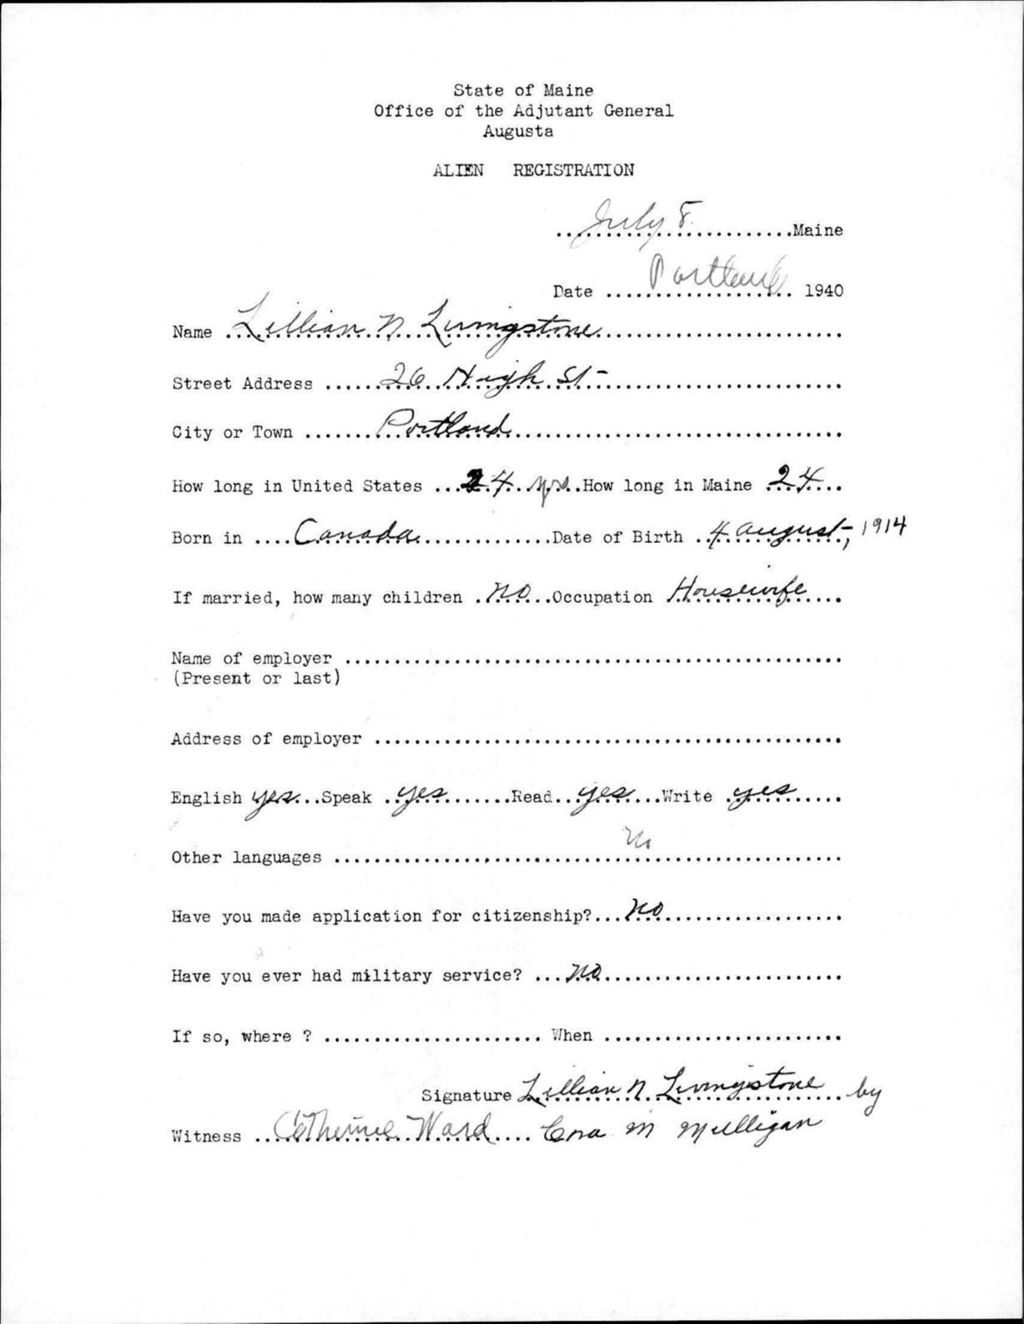 State of Maine
Office of the Adjutant General
Augusta
ALIEN REGISTRATION
July 8 Maine
Date Portland 1940
Name Lillian N Livingstone
Street Address 26 High St-
City or Town Portland
How long in United States 24 yrs. How long in Maine 24
Born in Canada Date of Birth 4 August, 1914
If married, how many children no Occupation Housewife
Name of employer
(Present or last)
Address of employer
English yes Speak yes Read yes Write yes
no
Other languages
Have you made application for citizenship? no
Have you ever had military service? no
If so, where ? When
Signature Lillian N Livingstone by
Witness Catherine Ward Cora M Mulligan